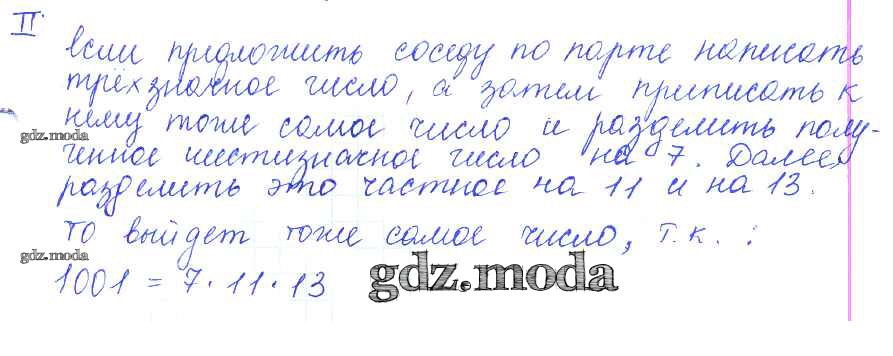 II.
если предложить соседу по парте написать
трёхзначное число, а затем приписать к
нему тоже самое число и разделить полу-
gdz.moda
ченное шестизначное число на 7. Далее,
разделить это частное на 11 и на 13.
то выйдет тоже самое число, т.к. :
gdz.moda
1001 = 7·11·13
gdz.moda